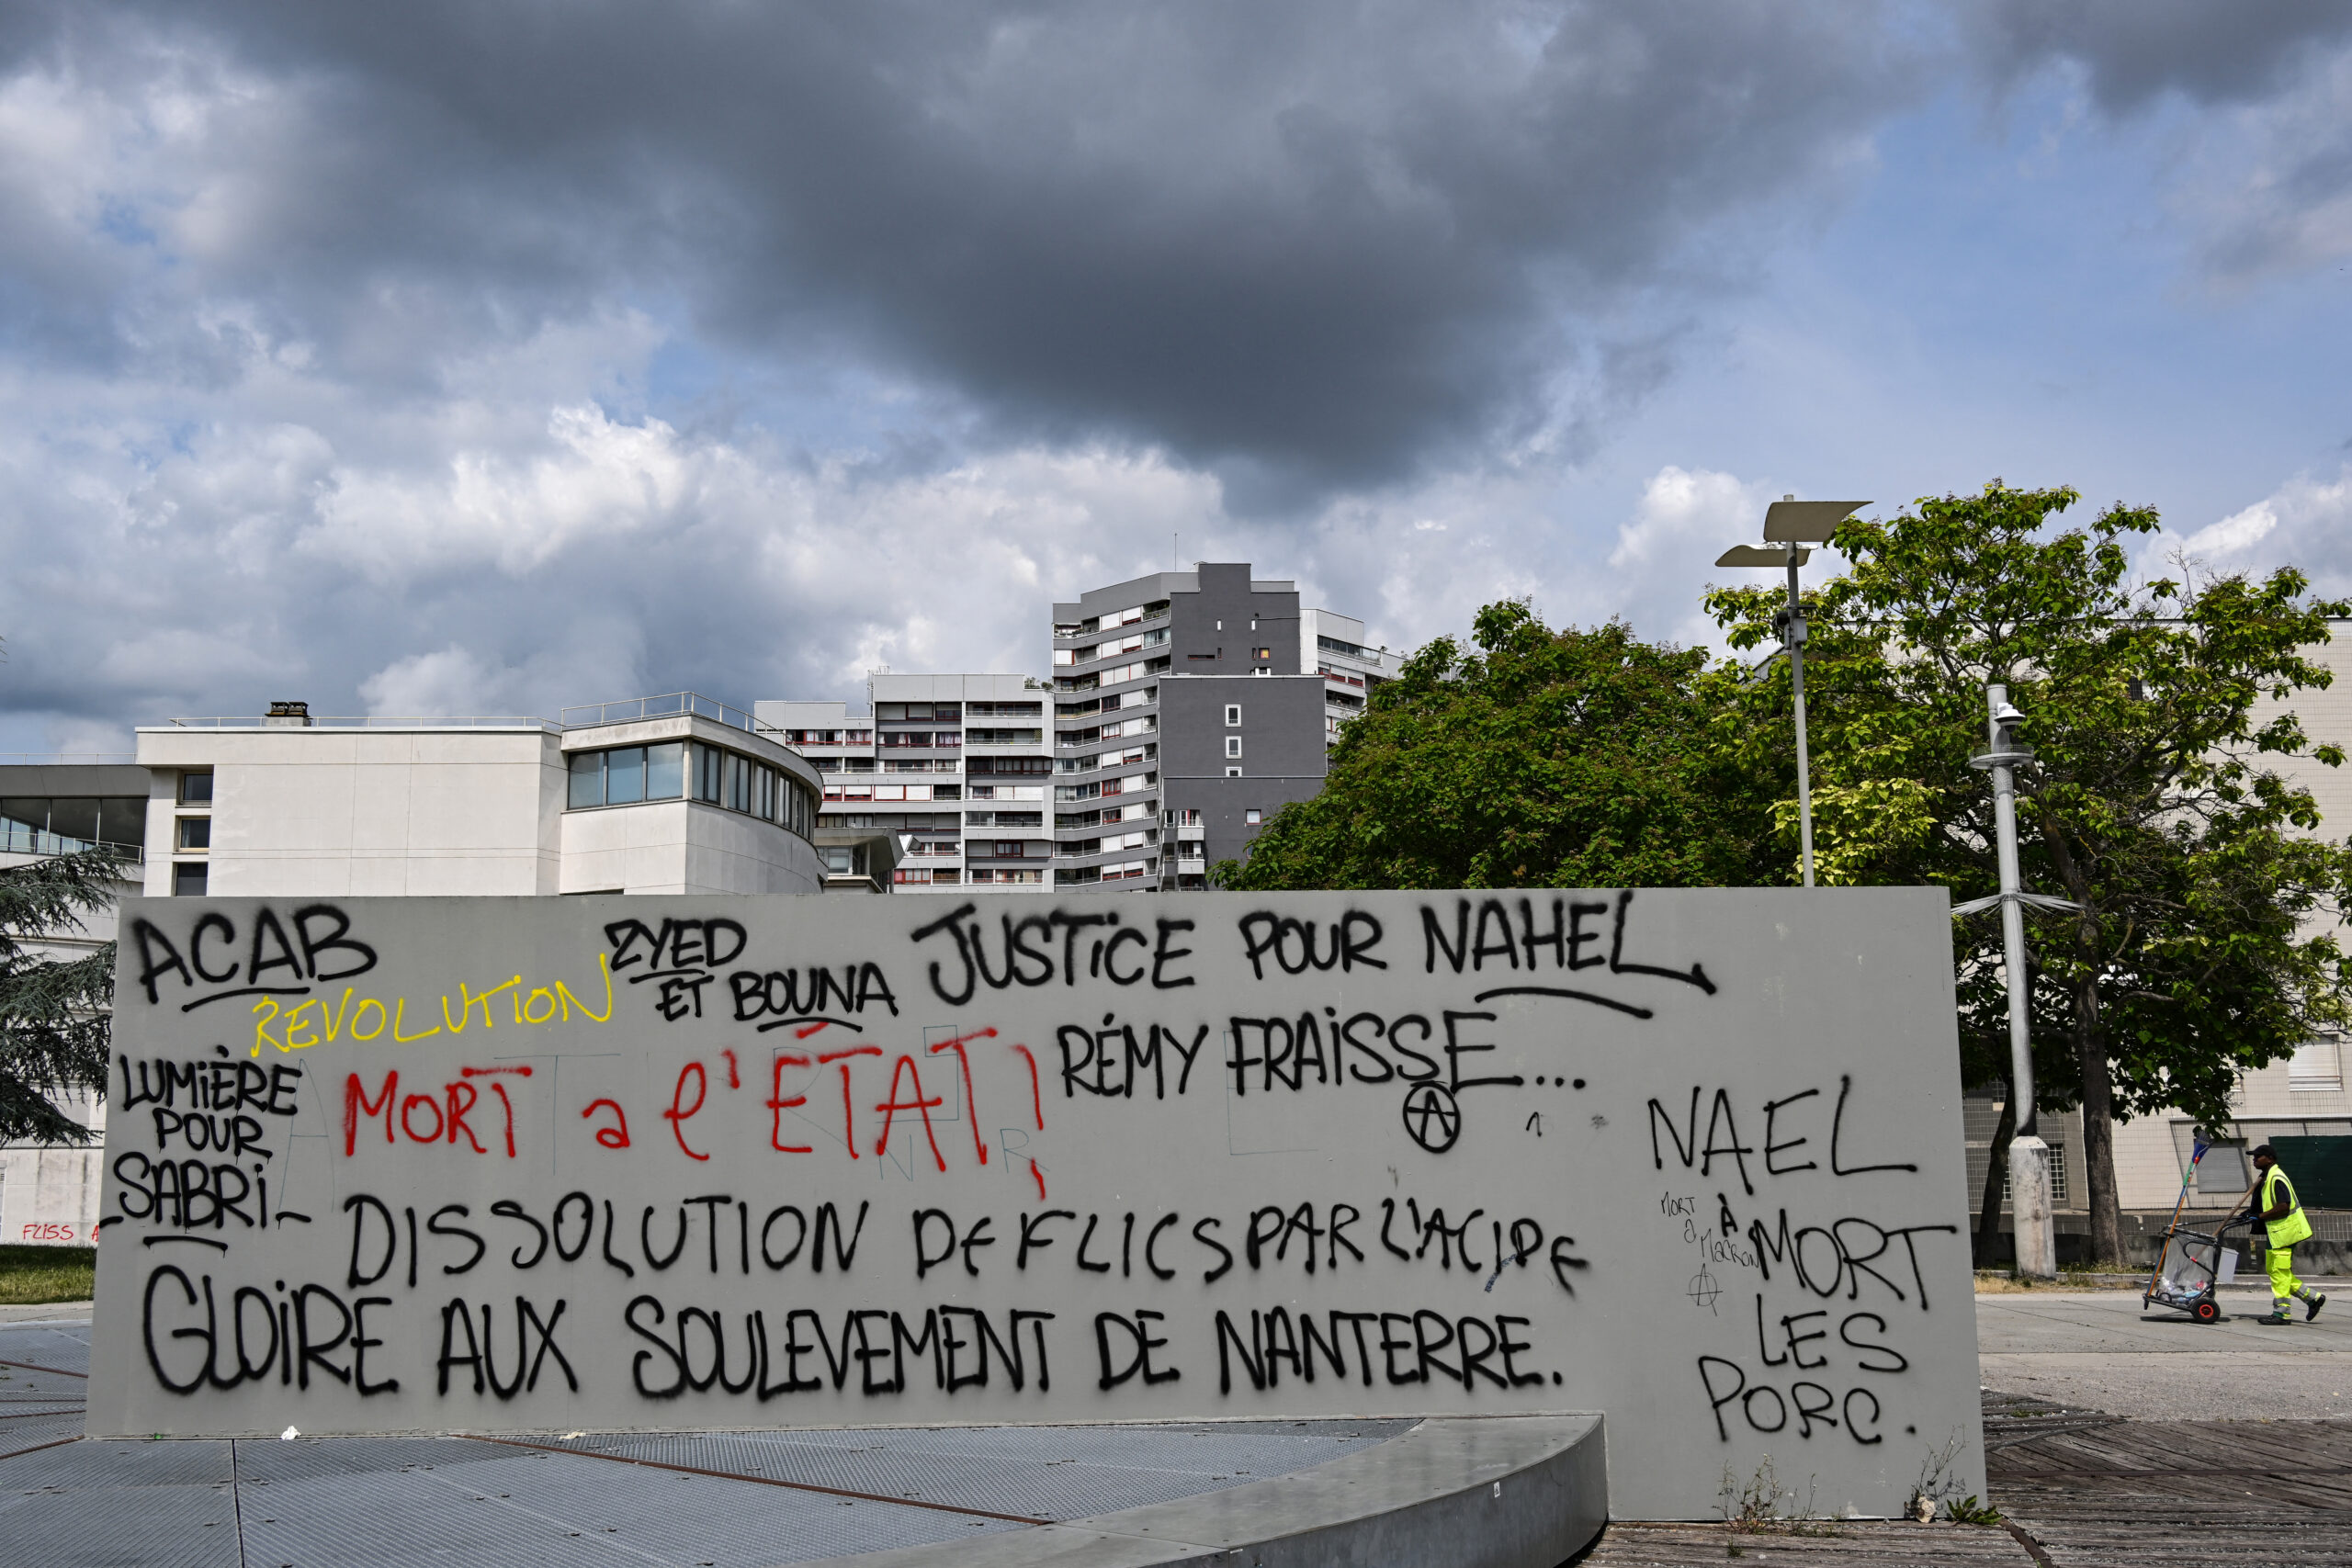 ACAB
REVOLUTION
ZYED
ET BOUNA
JUSTICE POUR NAHEL
RÉMY FRAISSE...
LUMIÈRE
POUR
SABRI
MORT a l'ÉTAT!
DISSOLUTION DE FLICS PAR L'ACIDE
GLOIRE AUX SOULEVEMENT DE NANTERRE.
NAEL
À MORT
LES
PORC.
MORT
a
MACRON
FLISS A